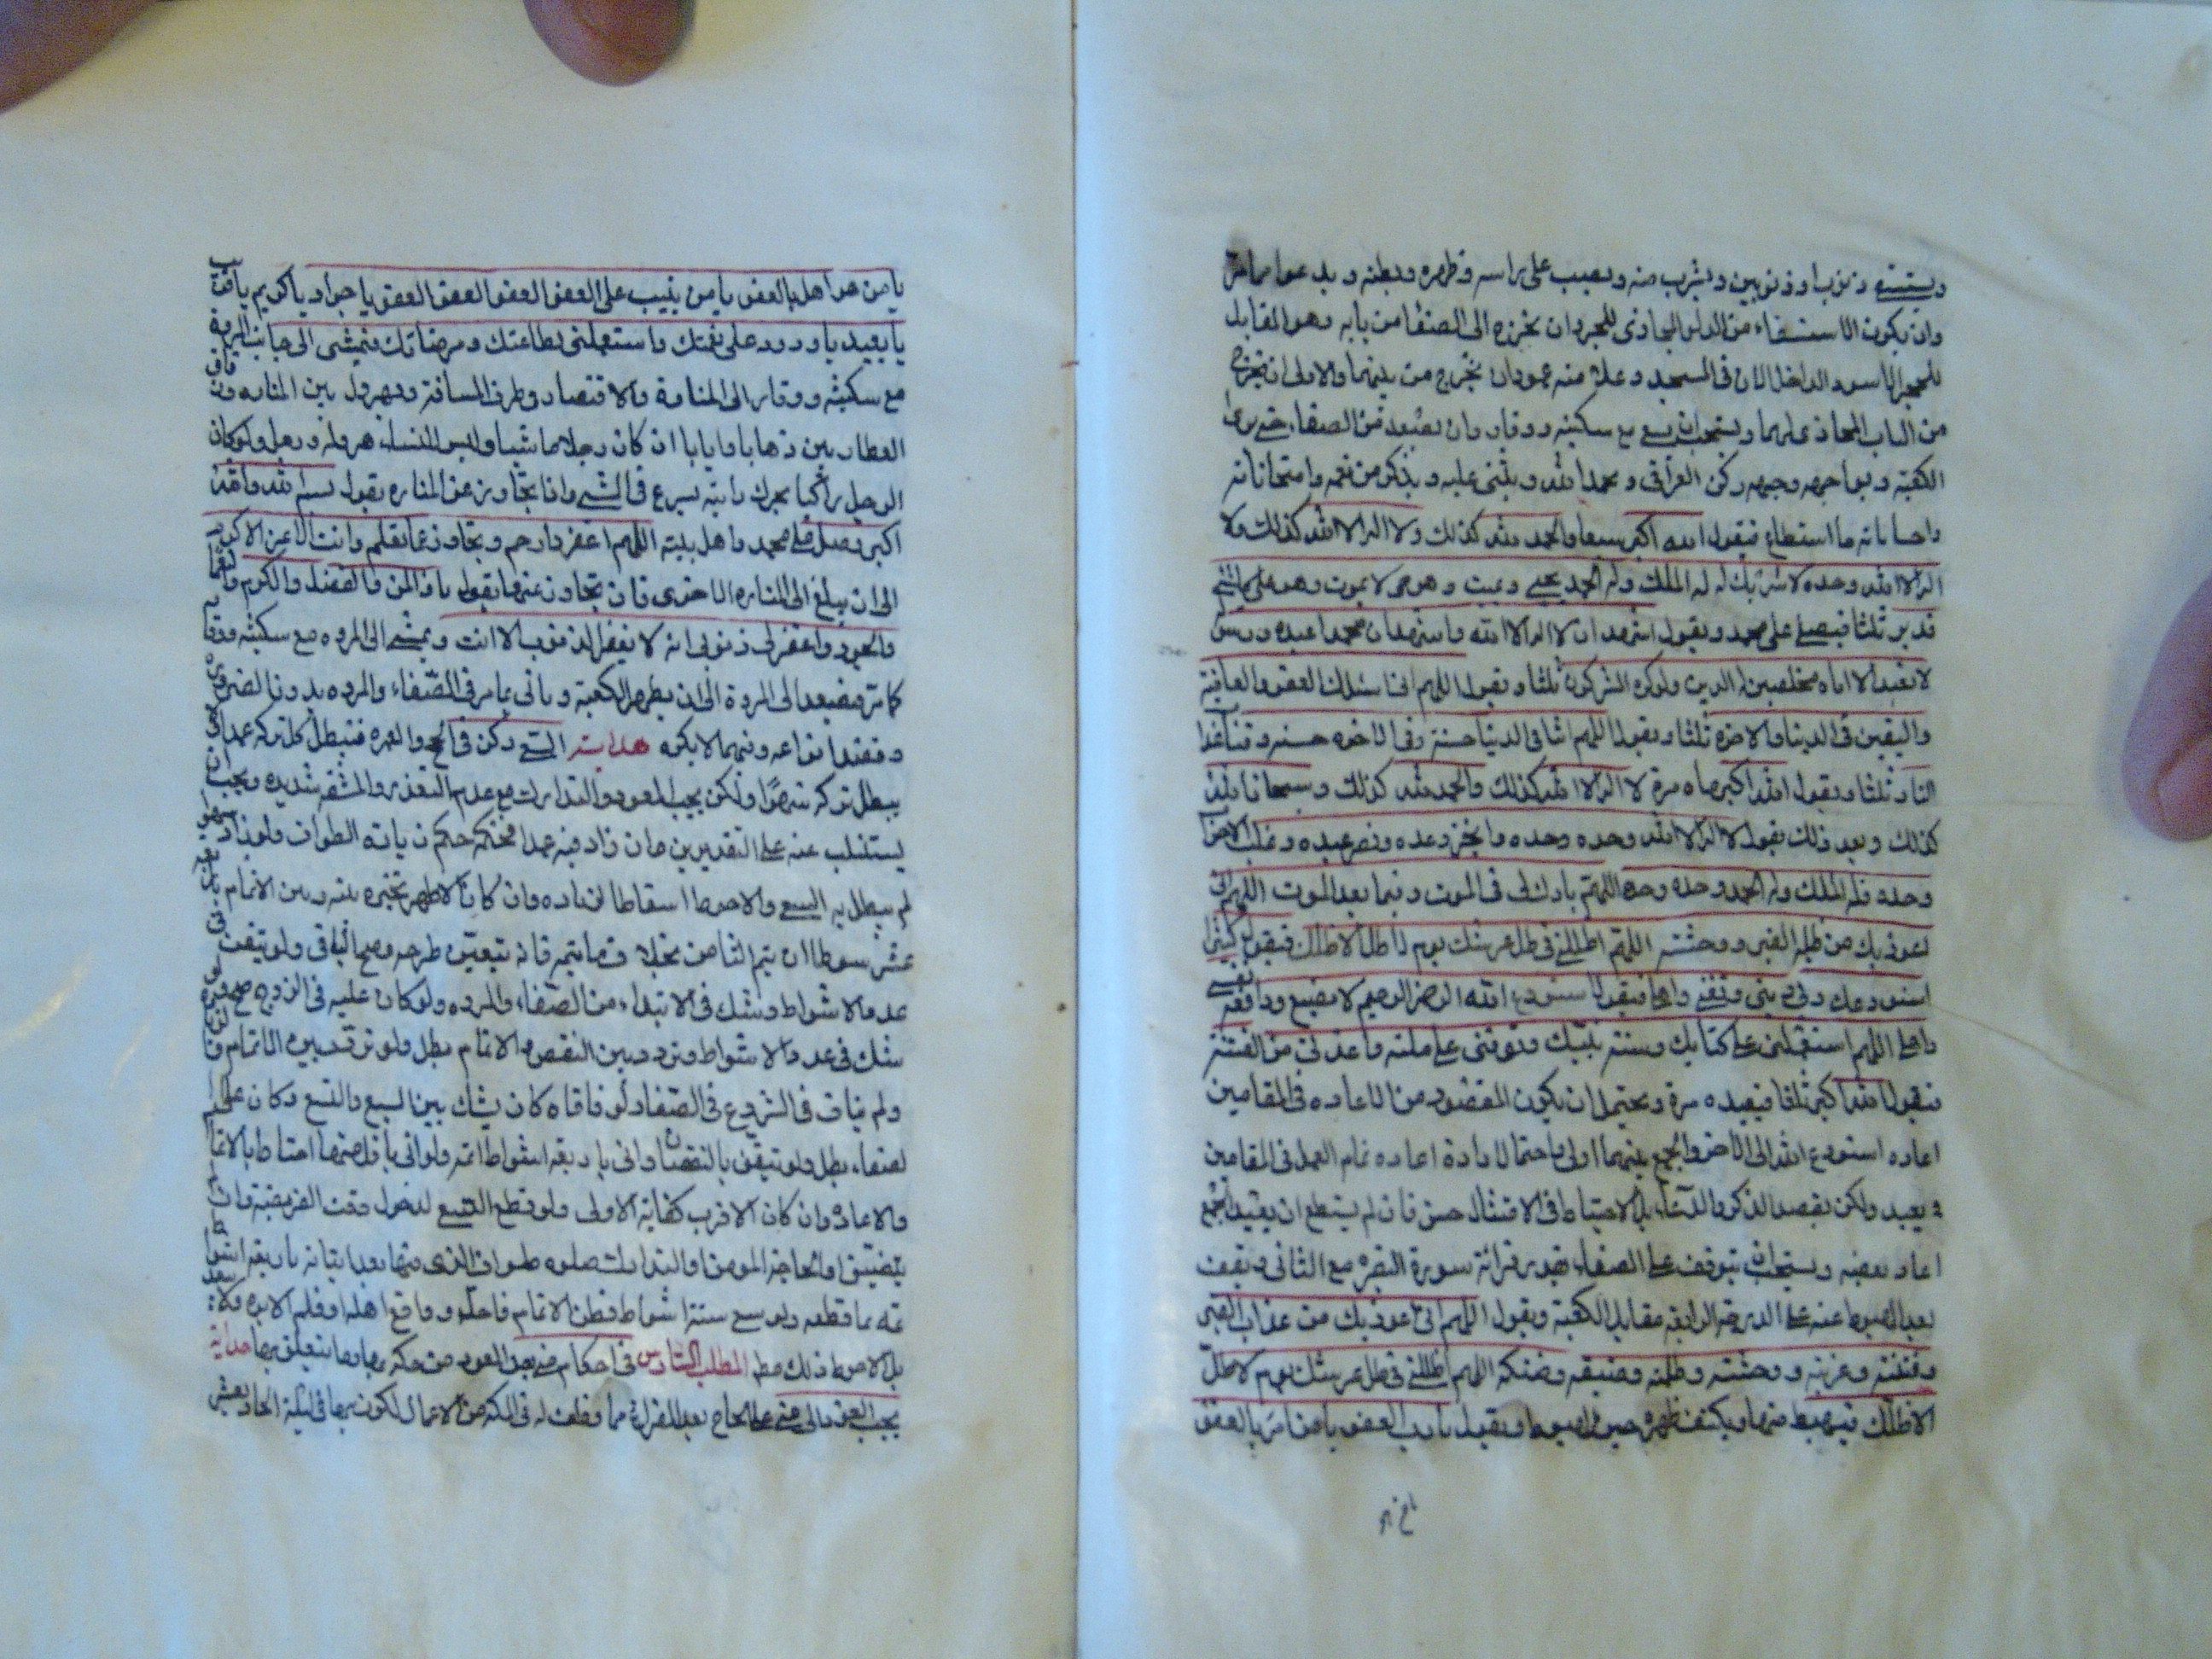 ويستقى ذنوبا او ذنوبين ويشرب منه ويصيب على راسه وظهره وبطنه ويدعو بما مر
وان يكون الاستسقاء من الدلو المحاذى للحجر وان يخرج الى الصفا من بابه وهو المقابل
للحجر الاسود الداخل الان فى المسجد وعلامته عمودان يخرج من بينهما والاولى ان يخرج
من الباب المحاذى لهما ويستحب ان يسعى مع سكينه ووقار وان يصعد من الصفاء حتى يرى
الكعبة ويواجهه وجهه ركن العراقى ويحمد الله ويثنى عليه ويذكر من نعمه وامتحاناته
واحساناته ما استطاع فيقول الله اكبر سبعا والحمد لله كذلك ولا اله الا الله كذلك ولا
اله الا الله وحده لا شريك له له الملك وله الحمد يحيى ويميت وهو حى لا يموت وهو على كل شئ
قدير ثلثا فيصلى على محمد ويقول اشهد ان لا اله الا الله واشهد ان محمدا عبده ورسوله
لا نعبد الا اياه مخلصين له الدين ولو كره المشركون ثلثا ويقول اللهم انى اسئلك العفو والعافية
واليقين فى الدنيا والاخرة ثلثا ويقول اللهم اتنا فى الدنيا حسنة وفى الاخره حسنه وقنا عذاب
النار ثلثا ويقول الله اكبر ماه مرة لا اله الا الله كذلك والحمد لله كذلك وسبحان الله
كذلك وبعد ذلك يقول لا اله الا الله وحده وحده وحده وانجز وعده ونصر عبده وغلب الاحزاب
وحده فله الملك وله الحمد وحده وحده اللهم بارك لى فى الموت وفيما بعد الموت اللهم انى
اعوذ بك من ظلمة القبر ووحشته اللهم اظلنى فى ظل عرشك يوم لا ظل الا ظلك فيقول كثيرا
استودعك دينى ونفسى واهلى فيقول استودع الله الرحمن الرحيم لا مضيع ودائعه نفسى
واهلى اللهم استعملنى على كتابك وسنة نبيك وتوفنى على ملته واعذنى من الفتنة
فيقول الله اكبر ثلثا فيعيده مرة ويحتمل ان يكون المقصود من الاعاده فى المقامين
اعاده استودع الله الى الاخر والجمع بينهما اولى واحتمال ارادة اعاده تمام العمل فى المقامين
بعيد ولكن بقصد الذكر والدعاء بل الاحتياط فى الامتثال حسن فان لم يستطع ان يعيد الجميع
اعاد بعضه ويستحب ان يتوقف على الصفاء بقدر قرائة سورة البقره مع التانى ويقف
بعد الهبوط عنه على الدرجة الرابعه مقابل الكعبة ويقول اللهم انى اعوذ بك من عذاب القبر
وفتنته وغربته ووحشته وظلمته وضيقه وضنكه اللهم اظلنى فى ظل عرشك يوم لا ظل
الا ظلك فيهبط منها ويكشف ظهره حين الهبوط ويقول يا رب العفو يا من امر بالعفو
يا من هو اهل بالعفو يا من يثيب على العفو العفو العفو العفو يا جواد يا كريم يا قريب
يا بعيد يا ودود على نعمتك واستعملنى بطاعتك ومرضاتك فيمشى الى جانب المروة
مع سكينه ووقار الى المنارة والاقتصاد وطرف المسافة ويهرول بين المناره وزقاق
العطارين ذهابا وايابا ان كان رجلا ماشيا وليس للنساء هروله ولو كان
الرجل راكبا يحرك دابته يسرع فى المشى واذا تجاوز عن المناره يقول بسم الله والله
اكبر وصل على محمد واهل بيته اللهم اغفر وارحم وتجاوز عما تعلم وانت الاعز الاكرم
الى ان يبلغ الى المناره الاخرى فان تجاوز عنها يقول يا ذا المن والفضل والكرم والنعماء
والجود واغفر لى ذنوبى انه لا يغفر الذنوب الا انت ويمشى الى المروه مع سكينه ووقار
كما مر فيصعد الى المروة الى ان يظهر الكعبة وياتى بما مر فى الصفاء والمروه بدون الضروره
هداية السعى ركن فى الحج والعمره فتبطل كل تركه عمدا ولا
يبطل تركه سهوا ولكن يجب العود والتدارك مع عدم التعذر والمشقه شديده ويجب ان
يستنيب عنه على التقديرين وان زاد فيه عمدا فحكمه حكم زيادة الطواف ولو زاد سهوا
لم يبطل به السعى والاحوط اسقاط الزياده وان كان الاظهر تخيره بينه وبين الاتمام
عشر شوطا ان يتم الثامن بخلاف ما يتمه فانه يتعين طرحه وصح الباقى ولو تيقن
عدد الاشواط وشك فى الابتداء من الصفاء والمروه ولو كان عليه فى الزوج صح ولو
شك فى عدد الاشواط وتردد بين النقص والاتمام بطل ولو تردد بين الاتمام
ولم يناف فى الشروع فى الصفا كان يشك بين السبع والتسع وكان على
لصفاء بطل ولو تيقن بالنقصان واتى باربعه اشواط اتمه ولو اتى باقل منها احتاط بالاتمام
والاعاده وان كان الاقرب كفاية الاولى ولو قطع السعى لدخول وقت الفريضة وان
يتضيق او لحاجة المومن او لتدارك صلوه طواف الذى منها بعد اتيانه باربعه اشواط
تمه بما قطعه ولو سعى ستة اشواط فظن الاتمام فاحل وواقع اهله او قلم
بل الاحوط ذلك مطلقا المطلب السادس فى احكام منى بعد العود من مكه بها وما يتعلق بها هداية
يجب العود الى منى على الحاج بعد الفراغ مما وظف له فى المكه من الاعمال لكون بها فى ليلة الحاديعشر